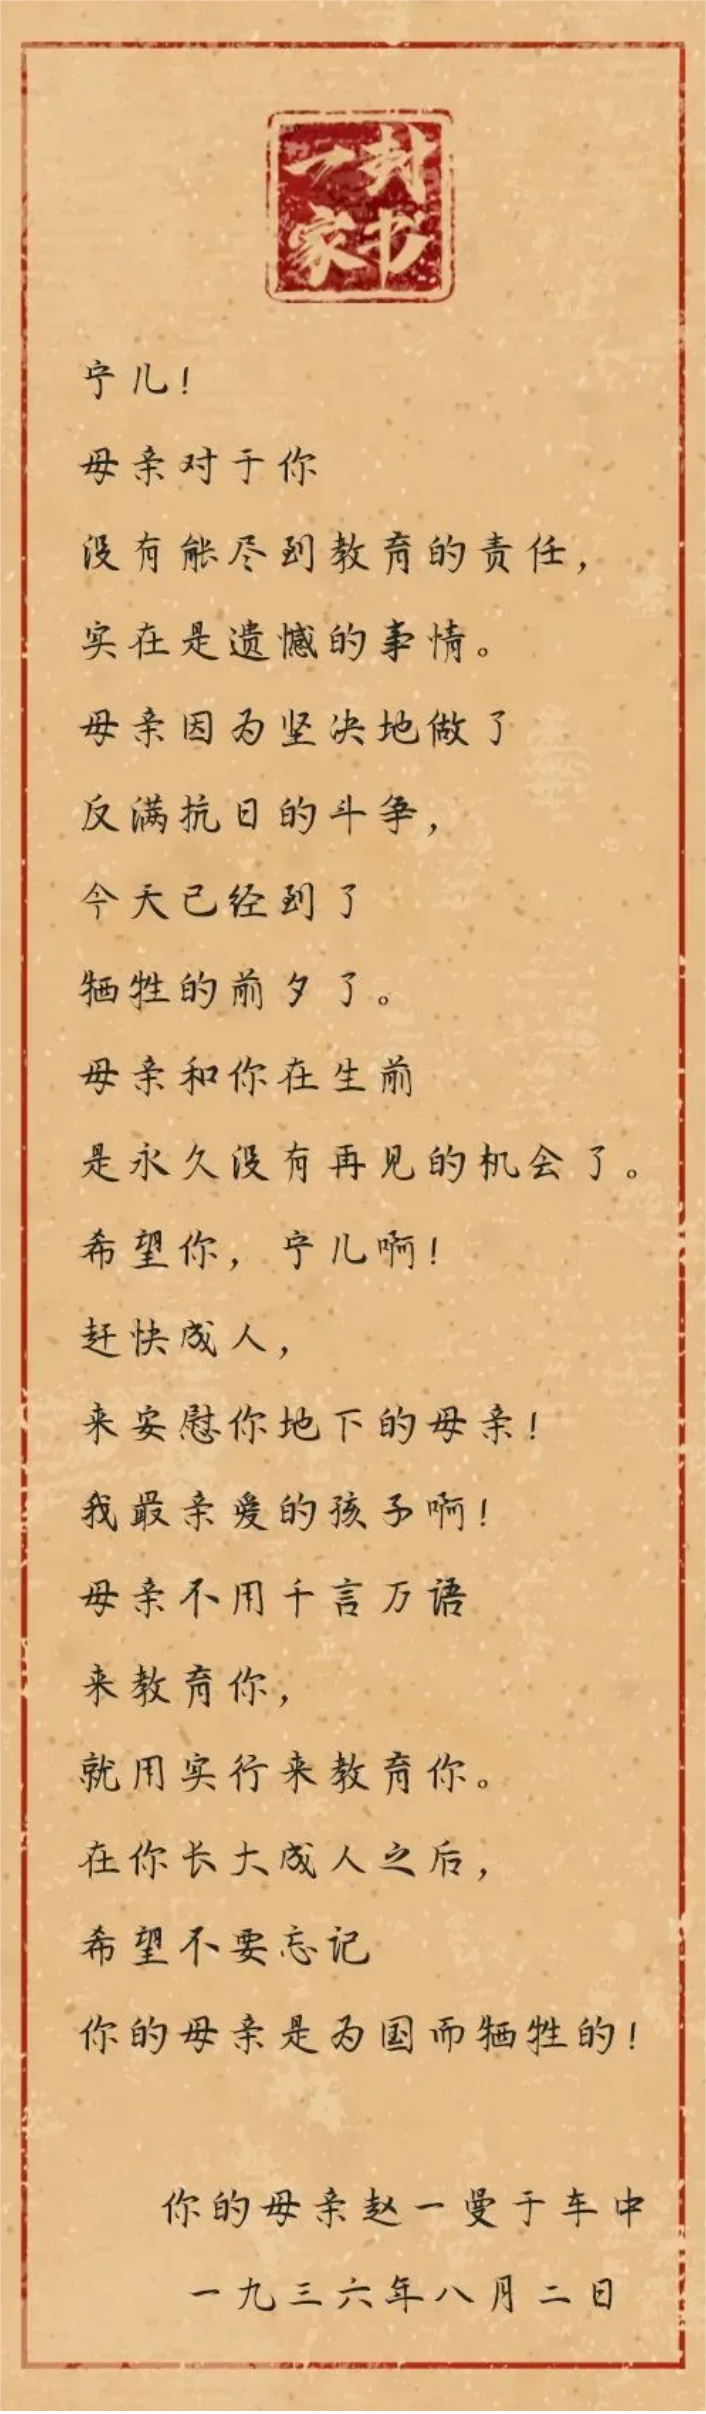 一封
家书
宁儿！
母亲对于你
没有能尽到教育的责任，
实在是遗憾的事情。
母亲因为坚决地做了
反满抗日的斗争，
今天已经到了
牺牲的前夕了。
母亲和你在生前
是永久没有再见的机会了。
希望你，宁儿啊！
赶快成人，
来安慰你地下的母亲！
我最亲爱的孩子啊！
母亲不用千言万语
来教育你，
就用实行来教育你。
在你长大成人之后，
希望不要忘记
你的母亲是为国而牺牲的！
你的母亲赵一曼于车中
一九三六年八月二日